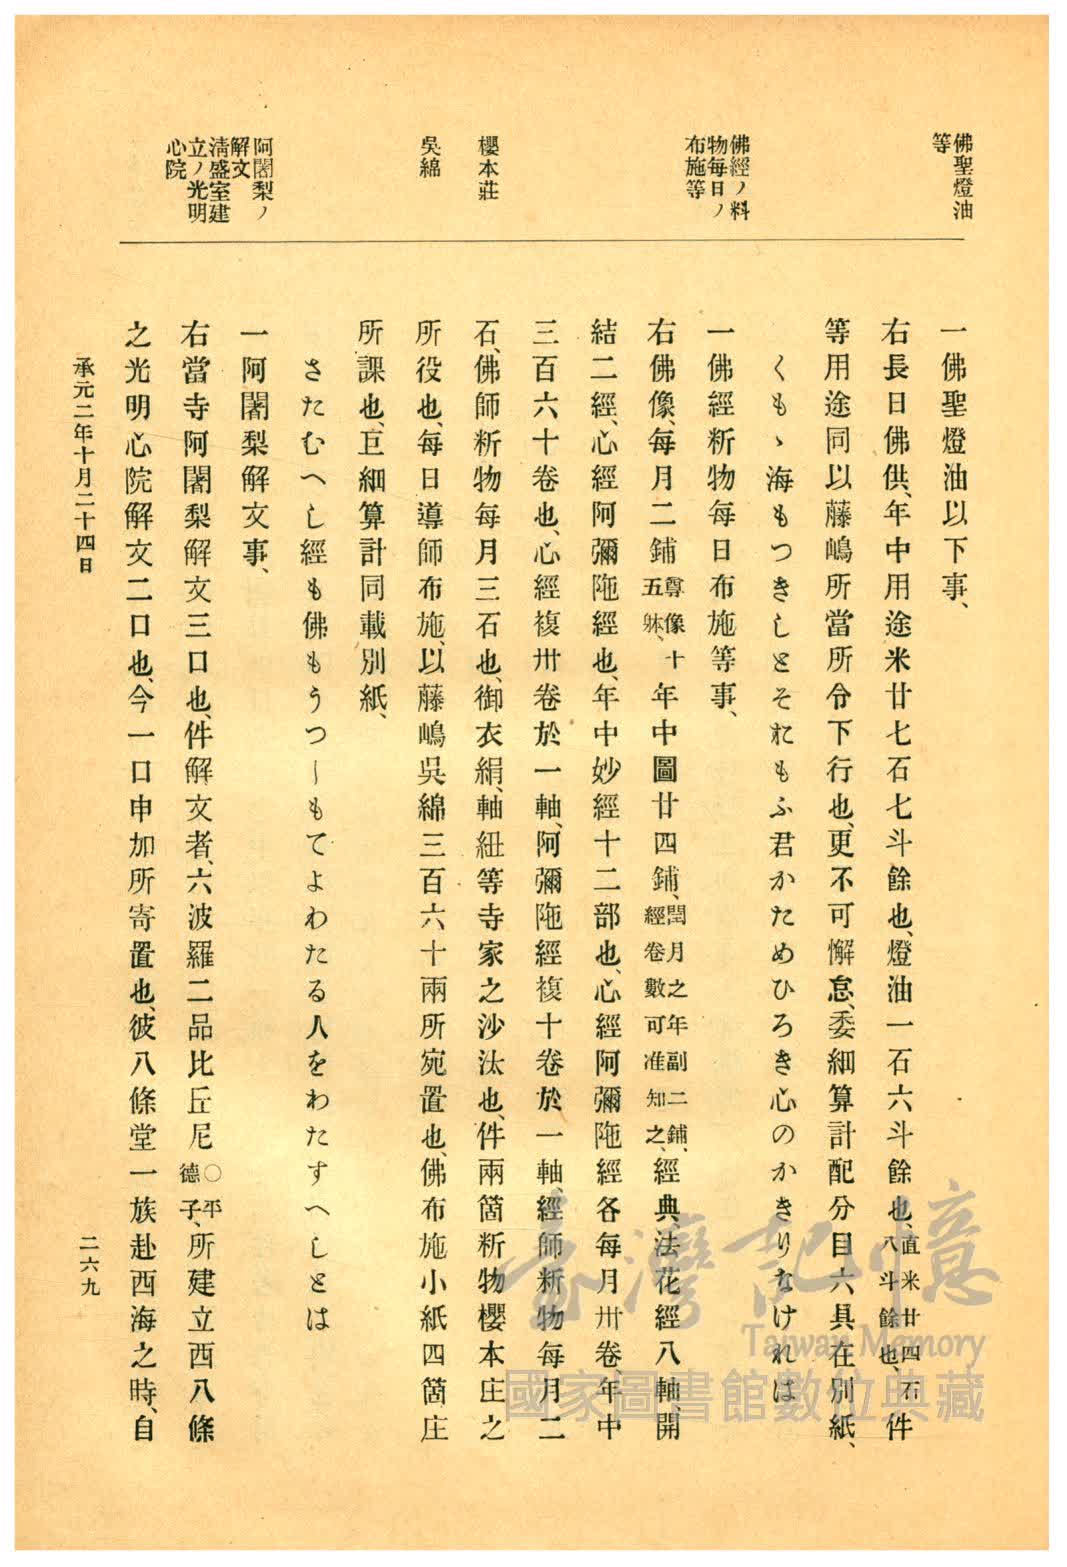 佛聖燈油
等
佛經ノ料
物每日ノ
布施等
櫻本莊
吳綿
阿闍梨ノ
解文
淸盛室建
立ノ光明
心院
一佛聖燈油以下事、
右長日佛供、年中用途米廿七石七斗餘也、燈油一石六斗餘也、直米廿四石八斗餘也、件
等用途同以藤嶋所當所令下行也、更不可懈怠、委細算計配分目六具在別紙、
くもゝ海もつきしとそおもふ君かためひろき心のかきりなけれは
一佛經斫物每日布施等事、
右佛像、每月二鋪尊像十五躰、年中圖廿四鋪、閏月之年副二鋪、經卷數可准知之、經典、法花經八軸、開
結二經、心經阿彌陁經也、年中妙經十二部也、心經阿彌陁經各每月卅卷、年中
三百六十卷也、心經複卅卷於一軸、阿彌陁經複十卷於一軸、經師斫物每月二
石、佛師斫物每月三石也、御衣絹、軸紐等寺家之沙汰也、件兩箇斫物櫻本庄之
所役也、每日導師布施、以藤嶋吳綿三百六十兩所宛置也、佛布施小紙四箇庄
所課也、巨細算計同載別紙、
さたむへし經も佛もうつしもてよわたる人をわたすへしとは
一阿闍梨解文事、
右當寺阿闍梨解文三口也、件解文者、六波羅二品比丘尼○平德子、所建立西八條
之光明心院解文二口也、今一口申加所寄置也、彼八條堂一族赴西海之時、自
承元二年十月二十四日
二六九
臺灣記憶
Taiwan Memory
國家圖書館數位典藏